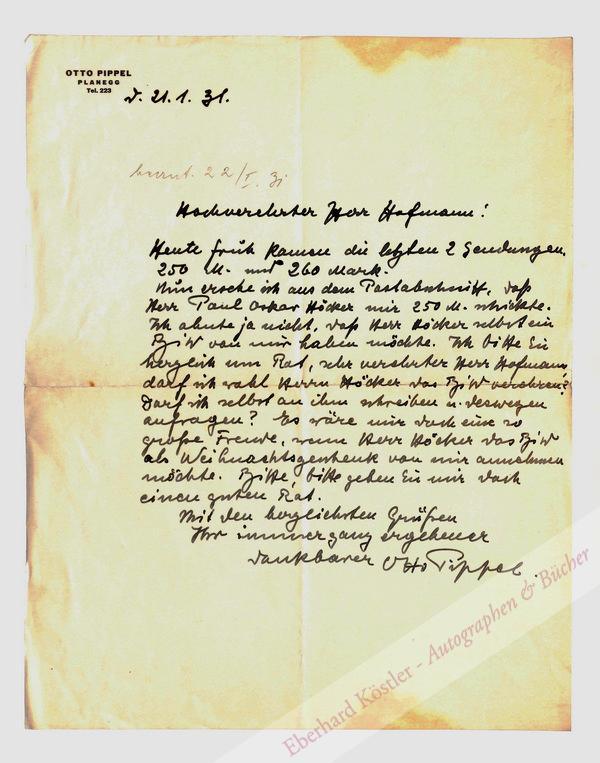 OTTO PIPPEL
PLANEGG
Tel. 223
d. 21. 1. 31.
beant. 22/I. 31
Hochverehrter Herr Hofmann!
Heute früh kamen die letzten 2 Sendungen,
250 M. und 260 Mark.
Nun ersehe ich aus dem Postabschnitt, daß
Herr Paul Oskar Höcker mir 250 M. schickte.
Ich ahnte ja nicht, daß Herr Höcker selbst ein
Bild von mir haben möchte. Ich bitte Sie
herzlich um Rat, sehr verehrter Herr Hofmann,
darf ich wohl Herrn Höcker das Bild verehren?
Darf ich selbst an ihm schreiben u. deswegen
anfragen? Es wäre mir doch eine so
große Freude, wenn Herr Höcker das Bild
als Weihnachtsgeschenk von mir annehmen
möchte. Bitte, bitte geben Sie mir doch
einen guten Rat.
Mit den herzlichsten Grüßen
Ihr immer ganz ergebener
dankbarer Otto Pippel.
Eberhard Köstler - Autographen & Bücher